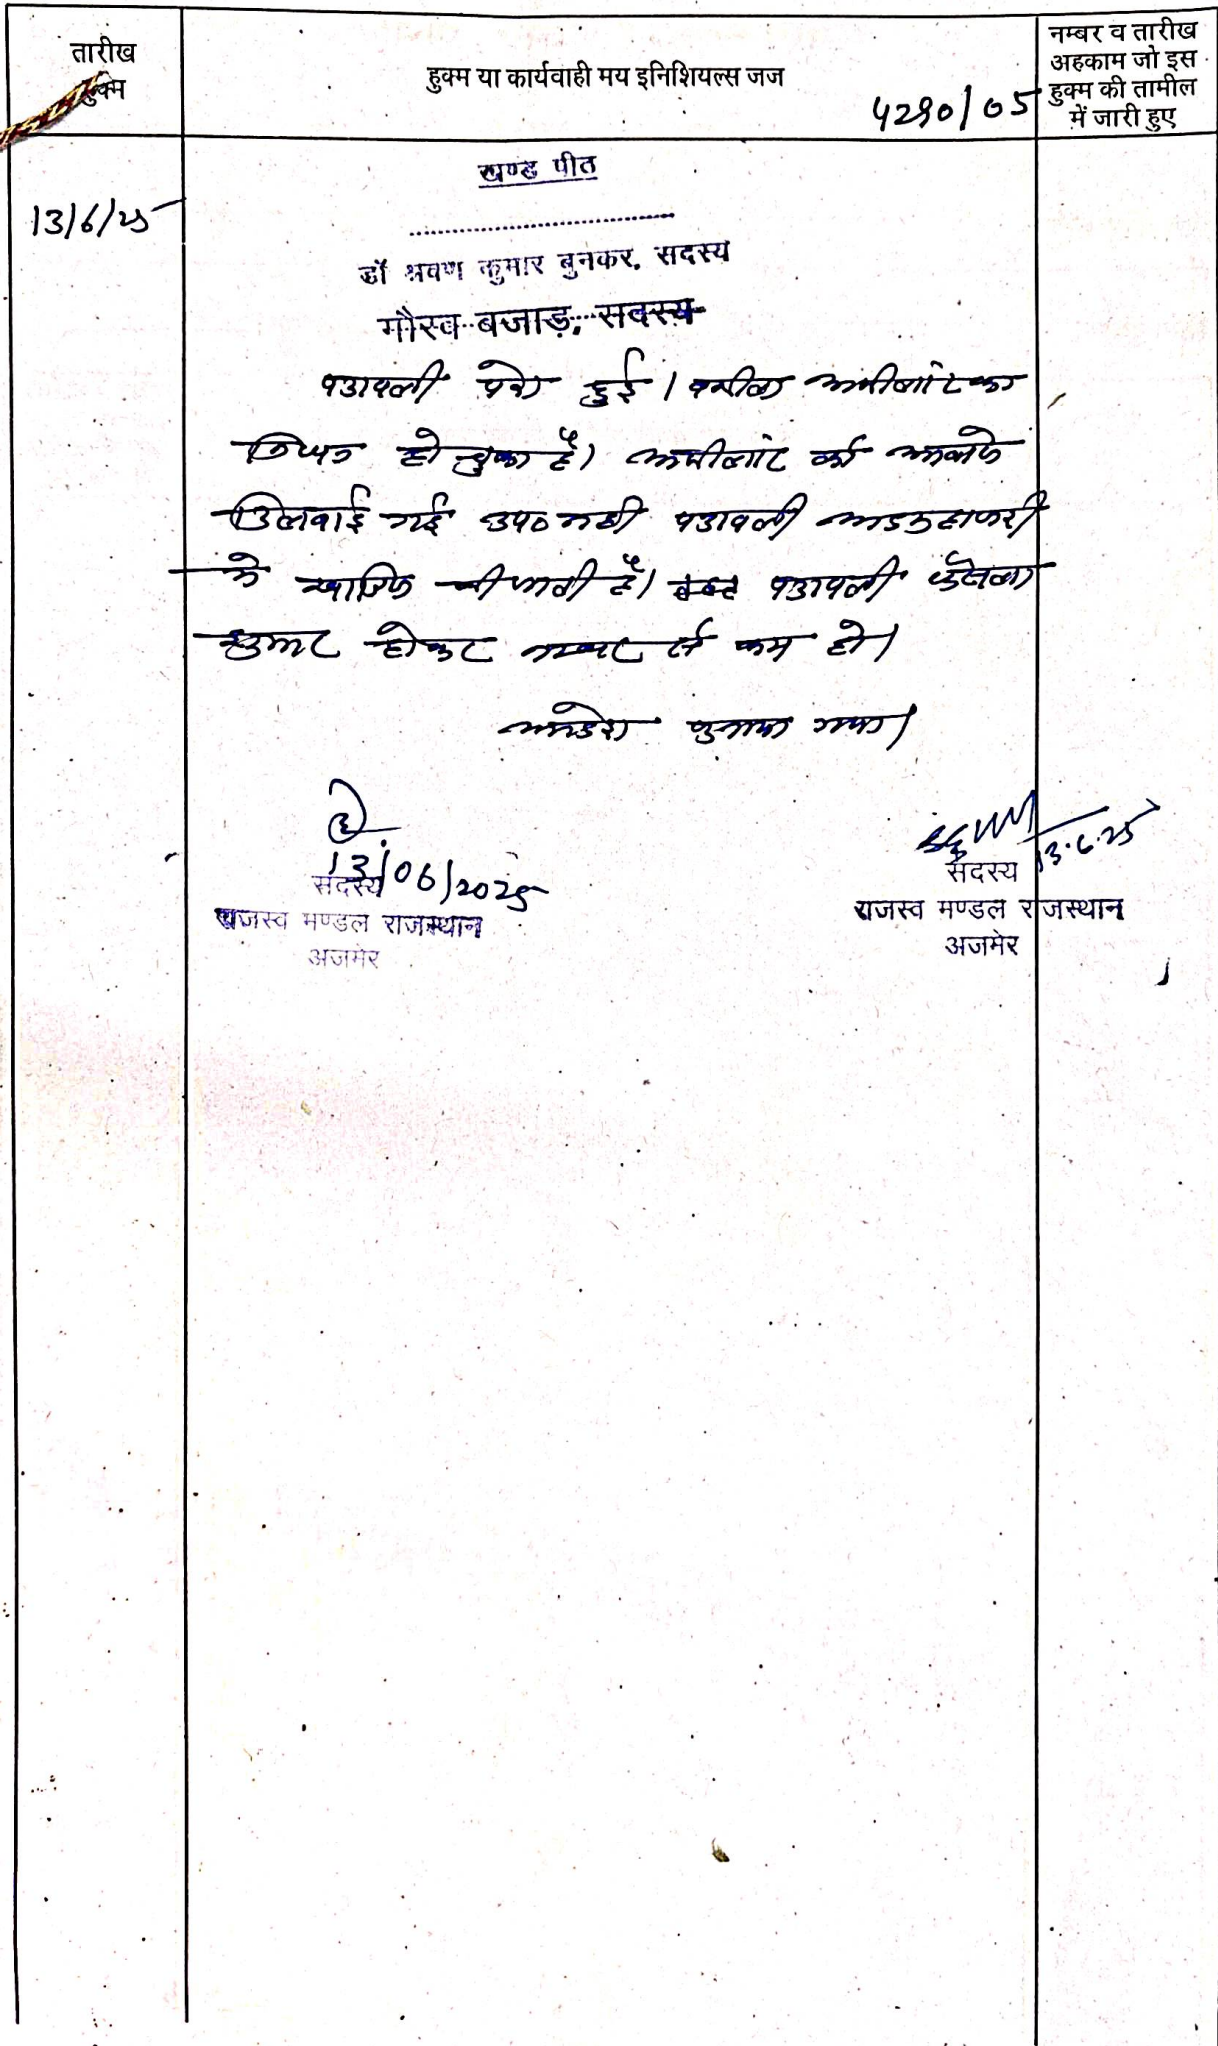 तारीख
हुक्म
हुक्म या कार्यवाही मय इनिशियल्स जज
4290/05
नम्बर व तारीख
अहकाम जो इस
हुक्म की तामील
में जारी हुए
13/6/25
खण्ड पीठ
डॉ श्रवण कुमार बुनकर, सदस्य
गौरव बजाड़, सदस्य
पत्रावली पेश हुई। वकील अपीलांट का
निधन हो चुका है। अपीलांट को आवाजे
दिलवाई गई उप० नहीं पत्रावली अदमहाजरी
मे खारिज की जाती है। पत्रावली फैसला
शुमार होकर नम्बर से कम हो।
आदेश सुनाया गया।
13/06/2025
सदस्य
राजस्व मण्डल राजस्थान
अजमेर
13.6.25
सदस्य
राजस्व मण्डल राजस्थान
अजमेर